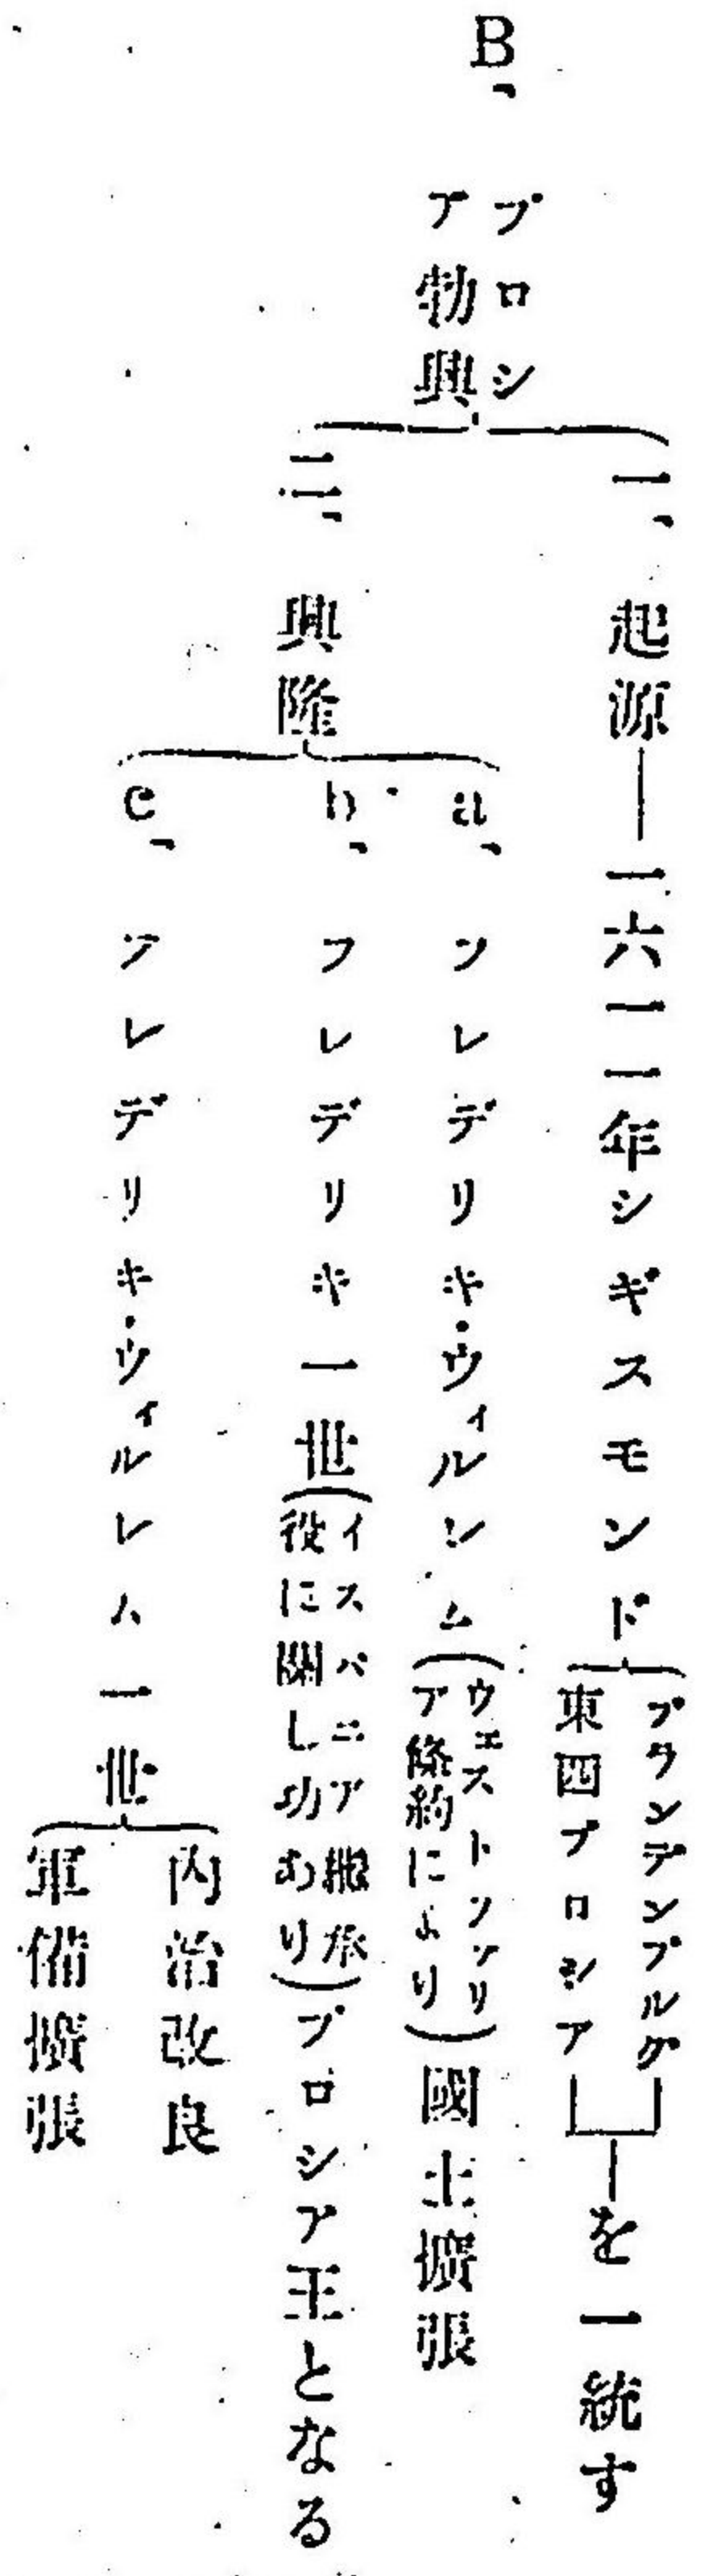 B、プロシア勃興
一、起源―一六一一年シギスモンド
ブランデンブルグ
東西プロシア
を一統す
二、興隆
a、フレデリキ・ウィルレム(ウェストファリア條約により)國土擴張
b、フレデリキ一世(イスパニア繼承役に關し功あり)プロシア王となる
c、フレデリキ・ウィルレム一世
内治改良
軍備擴張